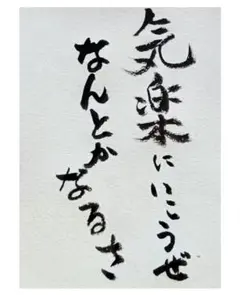 気楽にいこうぜ
なんとかなるさ